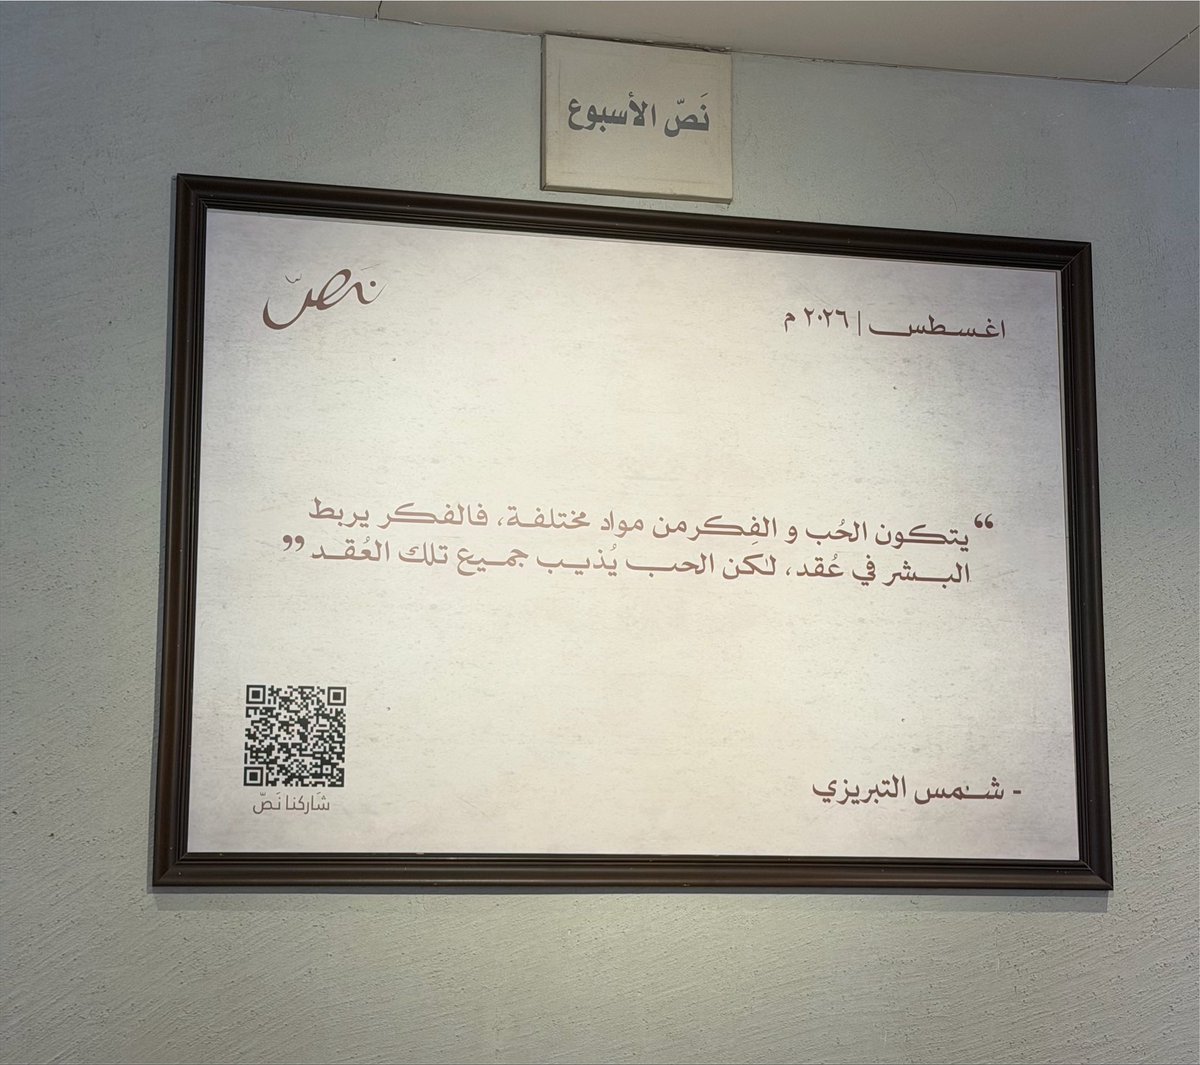 نَصّ الأسبوع
نَصّ
اغسطس | ٢٠٢٦ م
“ يتكون الحُب و الفِكرمن مواد مختلفة، فالفكر يربط
البشر في عُقد، لكن الحب يُذيب جميع تلك العُقد ”
- شمس التبريزي
شَاركنا نَصّ